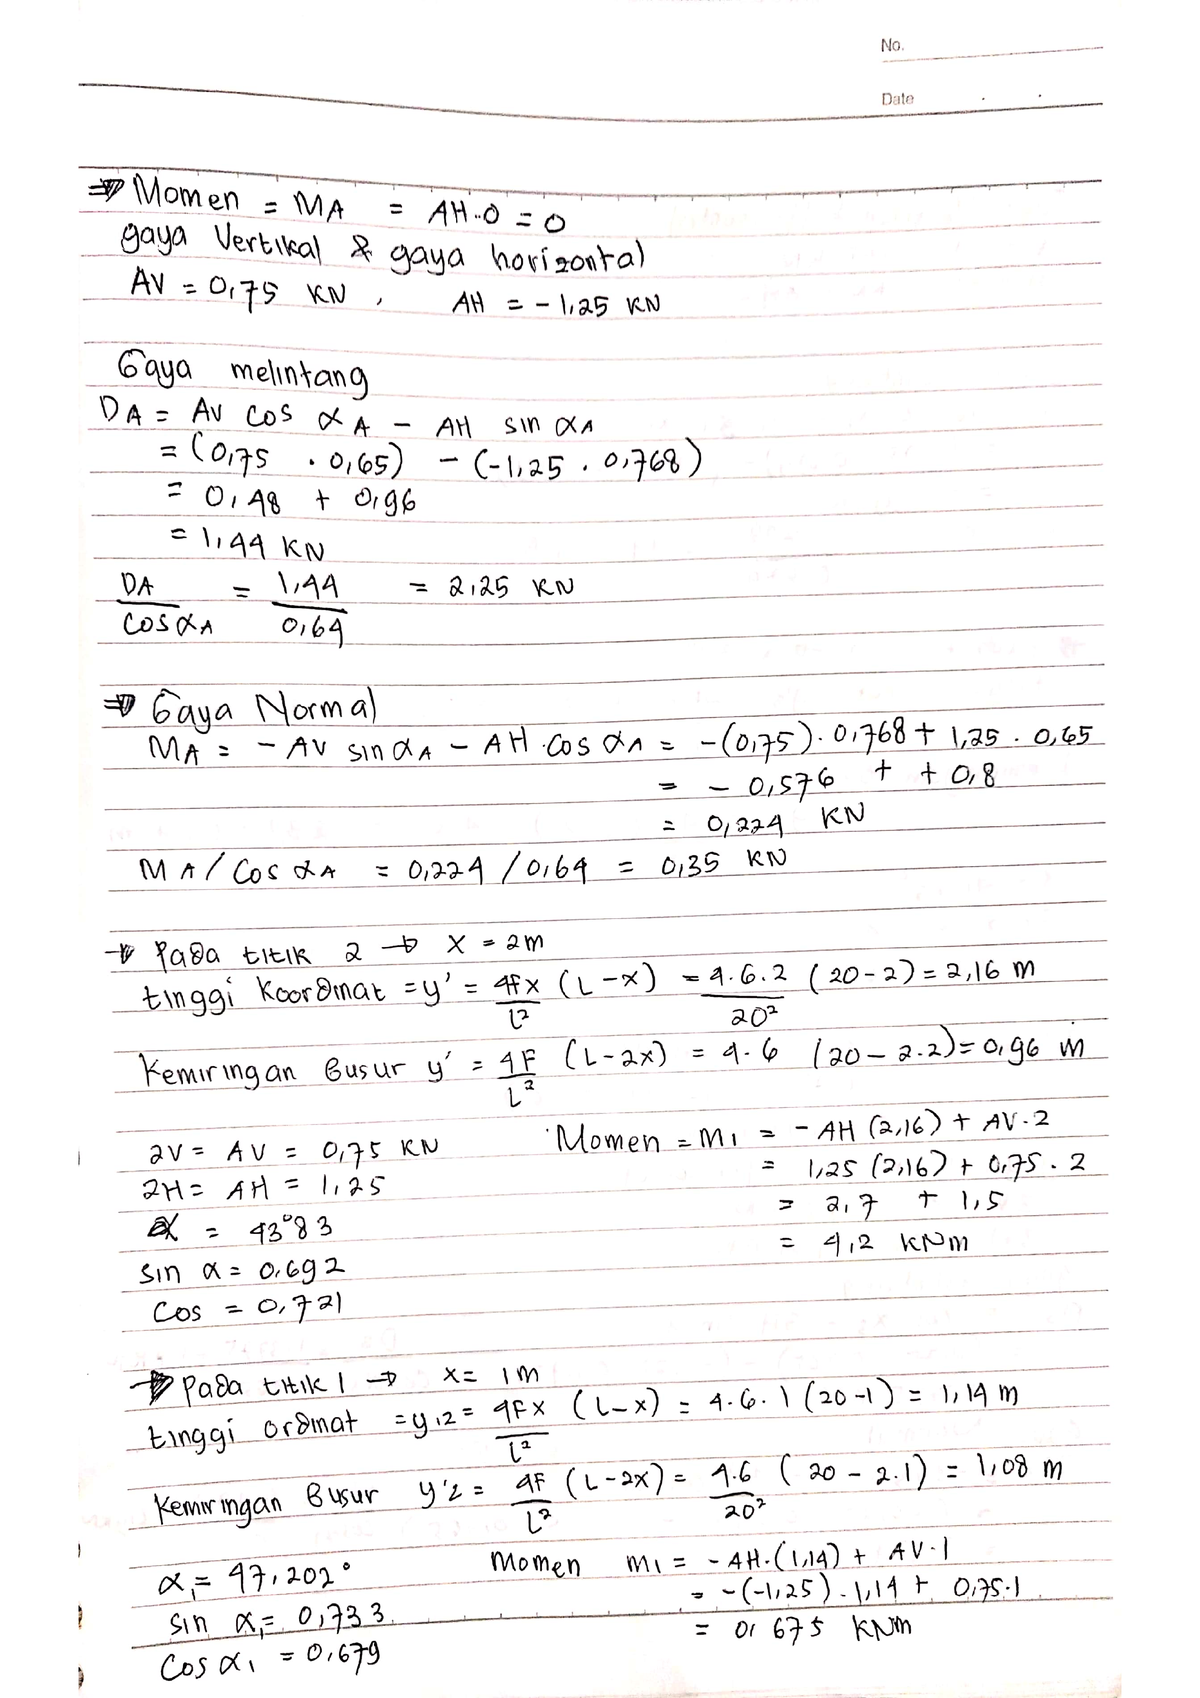 No.
Date
⇒ Momen = MA = AH..0 = 0
gaya Vertikal & gaya horizontal
AV = 0,75 KN , AH = - 1,25 KN
Gaya melintang
DA = AV cos α A - AH sin αA
= (0,75 . 0,65) - (-1,25 . 0,768)
= 0,48 + 0,96
= 1,44 KN
DA/cosαA = 1,44/0,64 = 2,25 KN
⇒ Gaya Normal
MA = - AV sinαA - AH .cos αA = -(0,75). 0,768 + 1,25 . 0,65
= - 0,576 + + 0,8
= 0,224 KN
MA / cos αA = 0,224 / 0,64 = 0,35 KN
→ Pada titik 2 → X = 2m
tinggi koordinat = y' = 4fx/L² (L-x) = 4.6.2/20² (20-2) = 2,16 m
Kemiringan Busur y' = 4F/L² (L-2x) = 4.6 (20-2.2) = 0,96 m
2V = AV = 0,75 KN Momen = M1 = - AH (2,16) + AV.2
2H = AH = 1,25 = 1,25 (2,16) + 0,75 . 2
α = 43°83 = 2,7 + 1,5
sin α = 0,692 = 4,2 KNm
cos = 0,721
⇒ Pada titik 1 → x = 1m
tinggi ordinat = y12 = 4Fx/L² (L-x) = 4.6.1 (20-1) = 1,14 m
Kemiringan Busur y'2 = 4F/L² (L-2x) = 4.6/20² (20 - 2.1) = 1,08 m
α1 = 47,202° Momen M1 = - AH.(1,14) + AV.1
sin α1 = 0,733 = -(-1,25).1,14 + 0,75.1
cos α1 = 0,679 = 0,675 KNm